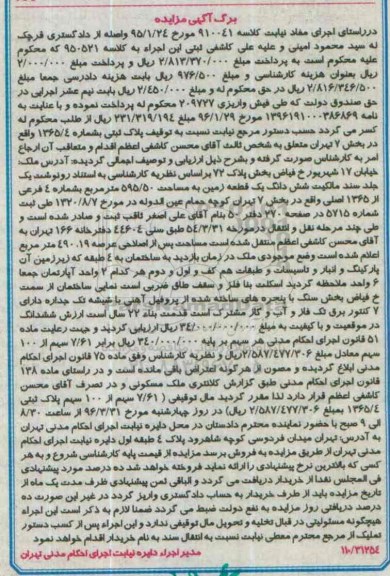 برگ آگهی مزایده
درراستای اجرای مفاد نیابت کلاسه ۹۱۰۰۴۱ مورخ ۹۵/۱/۲۴ واصله از دادگستری قرچک
له سید محمود امینی و علیه علی کاشفی ثبتی این اجراء به کلاسه ۹۵۰۵۲۱ که محکوم
علیه محکوم است به پرداخت مبلغ ۲/۸۱۳/۳۷۰/۰۰۰ ریال و پرداخت مبلغ ۲/۰۰۰/۰۰۰
ریال بعنوان هزینه کارشناسی و مبلغ ۹۷۶/۵۰۰ ریال بابت هزینه دادرسی جمعا مبلغ
۲/۸۱۶/۳۴۶/۵۰۰ ریال در حق محکوم له و مبلغ ۲/۴۵۰/۰۰۰ ریال بابت نیم عشر اجرایی در
حق صندوق دولت که طی فیش واریزی ۲۰۹۷۲۷ محکوم له پرداخت نموده و با عنایت به
نامه ۱۳۹۶۱۹۱۰۰۰۳۸۶۸۶۹ مورخ ۹۶/۱/۲۹ مبلغ ۲۳۱/۳۱۹/۱۹۴ ریال از طلب محکوم له
کسر می گردد حسب دستور مرجع نیابت نسبت به توقیف پلاک ثبتی بشماره ۱۳۶۵/۴ واقع
در بخش ۷ تهران متعلق به شخص ثالث آقای محسن کاشفی اعظم اقدام و متعاقب آن ارجاع
امر به کارشناس صورت گرفته و بشرح ذیل ارزیابی و توصیف اجمالی گردیده: آدرس ملک:
خیابان ۱۷ شهریور خ فیاض بخش پلاک ۷۲ براساس نظریه کارشناسی به استناد رونوشت یک
جلد سند مالکیت شش دانگ یک قطعه زمین به مساحت ۵۹۵/۵۰ مترمربع بشماره ۴ فرعی
از ۱۳۶۵ اصلی واقع در بخش ۷ تهران کوچه حمام عین الدوله در مورخ ۱۳۲۰/۸/۷ طی ثبت
شماره ۵۷۱۵ در صفحه ۲۷۰ دفتر ۵۰ بنام آقای علی اصغر ثاقب ثبت و صادر شده است و
طی چند مرحله نقل و انتقال درمورخه ۵۴/۳/۳۱ طبق سند ۴۴۶۰۴ دفترخانه ۱۶۶ تهران به
آقای محسن کاشفی اعظم منتقل شده است مساحت پس از اصلاحی عرصه ۴۹۰.۱۹ متر مربع
اعلام شده است وضع موجودی ملک در زمان بازدید به ساختمان به ۴ طبقه که زیرزمین آن
پارکینگ و انبار و تاسیسات و طبقات هم کف و اول و دوم هر کدام ۲ واحد آپارتمان جمعا
۶ واحد ملاحظه گردید اسکلت بنا فلز و سقف طاق ضربی است نمایی ساختمان از سمت
خ فیاض بخش سنگ با پنجره های ساخته شده از پروفیل آهنی با شیشه تک جداره دارای
۷ کنتور برق تک فاز و آب و گاز مشترک است قدمت بناء ۲۲ سال است ارزش ششدانگ
در موقعیت و با کیفیت به مبلغ ۳۴/۰۰۰/۰۰۰/۰۰۰ ریال ارزیابی گردید و جهت رعایت ماده
۵۱ قانون اجرای احکام مدنی هر سهم بر پایه ۳۴۰/۰۰۰/۰۰۰ ریال برابر ۷/۶۱ سهم از ۱۰۰
سهم معادل مبلغ ۲/۵۸۷/۴۷۷/۳۰۶ ریال و نظریه کارشناسی وفق ماده ۷۵ قانون اجرای احکام
مدنی ابلاغ گردیده و مصون از هرگونه اعتراض باقی مانده است و در راستای ماده ۱۳۸
قانون اجرای احکام مدنی طبق گزارش کلانتری ملک مسکونی و در تصرف آقای محسن
کاشفی اعظم قرار دارد لذا مقرر گردید مال توقیفی ( ۷/۶۱ سهم از ۱۰۰ سهم پلاک ثبتی
۱۳۶۵/۴ بمبلغ ۲/۵۸۷/۴۷۷/۳۰۶ ریال) در روز چهارشنبه مورخ ۹۶/۳/۳۱ از ساعت ۸/۳۰
الی ۹ صبح با حضور نماینده محترم دادستان در محل دایره نیابت اجرای احکام مدنی تهران
به آدرس: تهران میدان فردوسی کوچه شاهرود پلاک ۴ طبقه اول دایره نیابت اجرای احکام
مدنی تهران از طریق مزایده به فروش برسد مزایده از قیمت پایه کارشناسی شروع و به هر
کسی که بالاترین نرخ پیشنهادی را ارائه نماید فروخته خواهد شد ده درصد مورد پیشنهادی
فی المجلس نقدا از خریدار دریافت می گردد و الباقی ثمن پیشنهادی ظرف مدت یک ماه از
تاریخ مزایده باید از طرف خریدار به حساب دادگستری واریز گردد در غیر این صورت ده
درصد دریافتی روز مزایده به نفع دولت ضبط می گردد ضمنا لازم به ذکر است این اجراء
هیچگونه مسئولیتی در قبال تخلیه و تحویل مال توقیفی ندارد و این اجراء پس از کسب دستور
تملیک از مرجع محترم معطی نیابت نسبت به انتقال سند به نام خریدار اقدام خواهد نمود
۱۱۰/۳۱۲۵۴ مدیر اجراء دایره نیابت اجرای احکام مدنی تهران